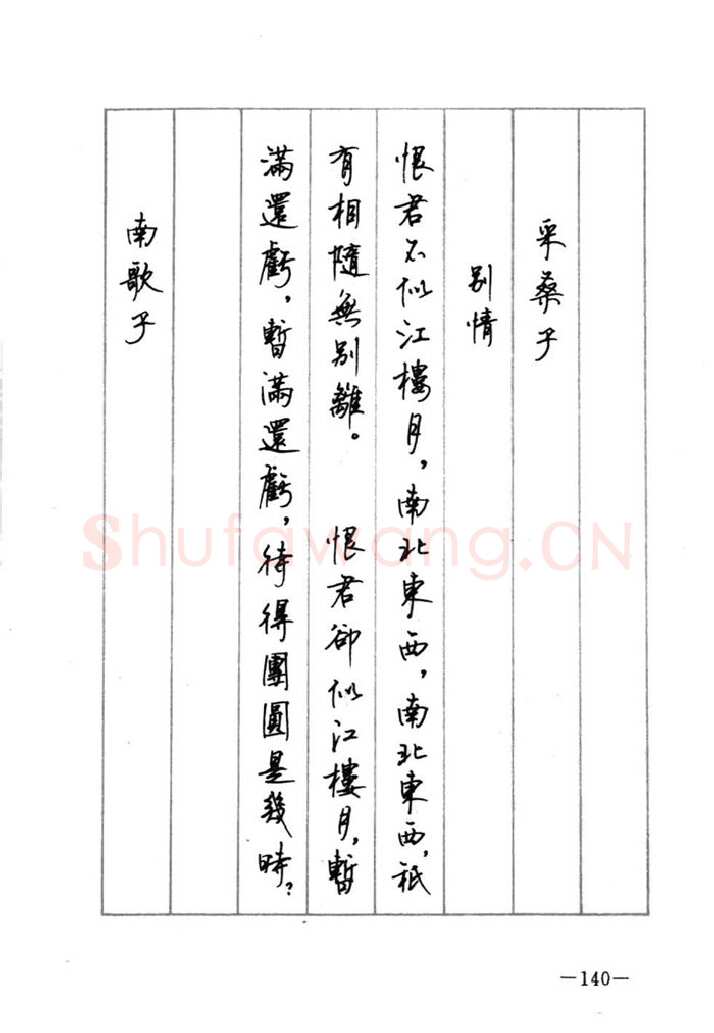 采桑子
别情
恨君不似江樓月，南北東西，南北東西，祇
有相隨無别離。 恨君卻似江樓月，暫
滿還虧，暫滿還虧，待得團圓是幾時？
南歌子
Shufawang.CN
—140—